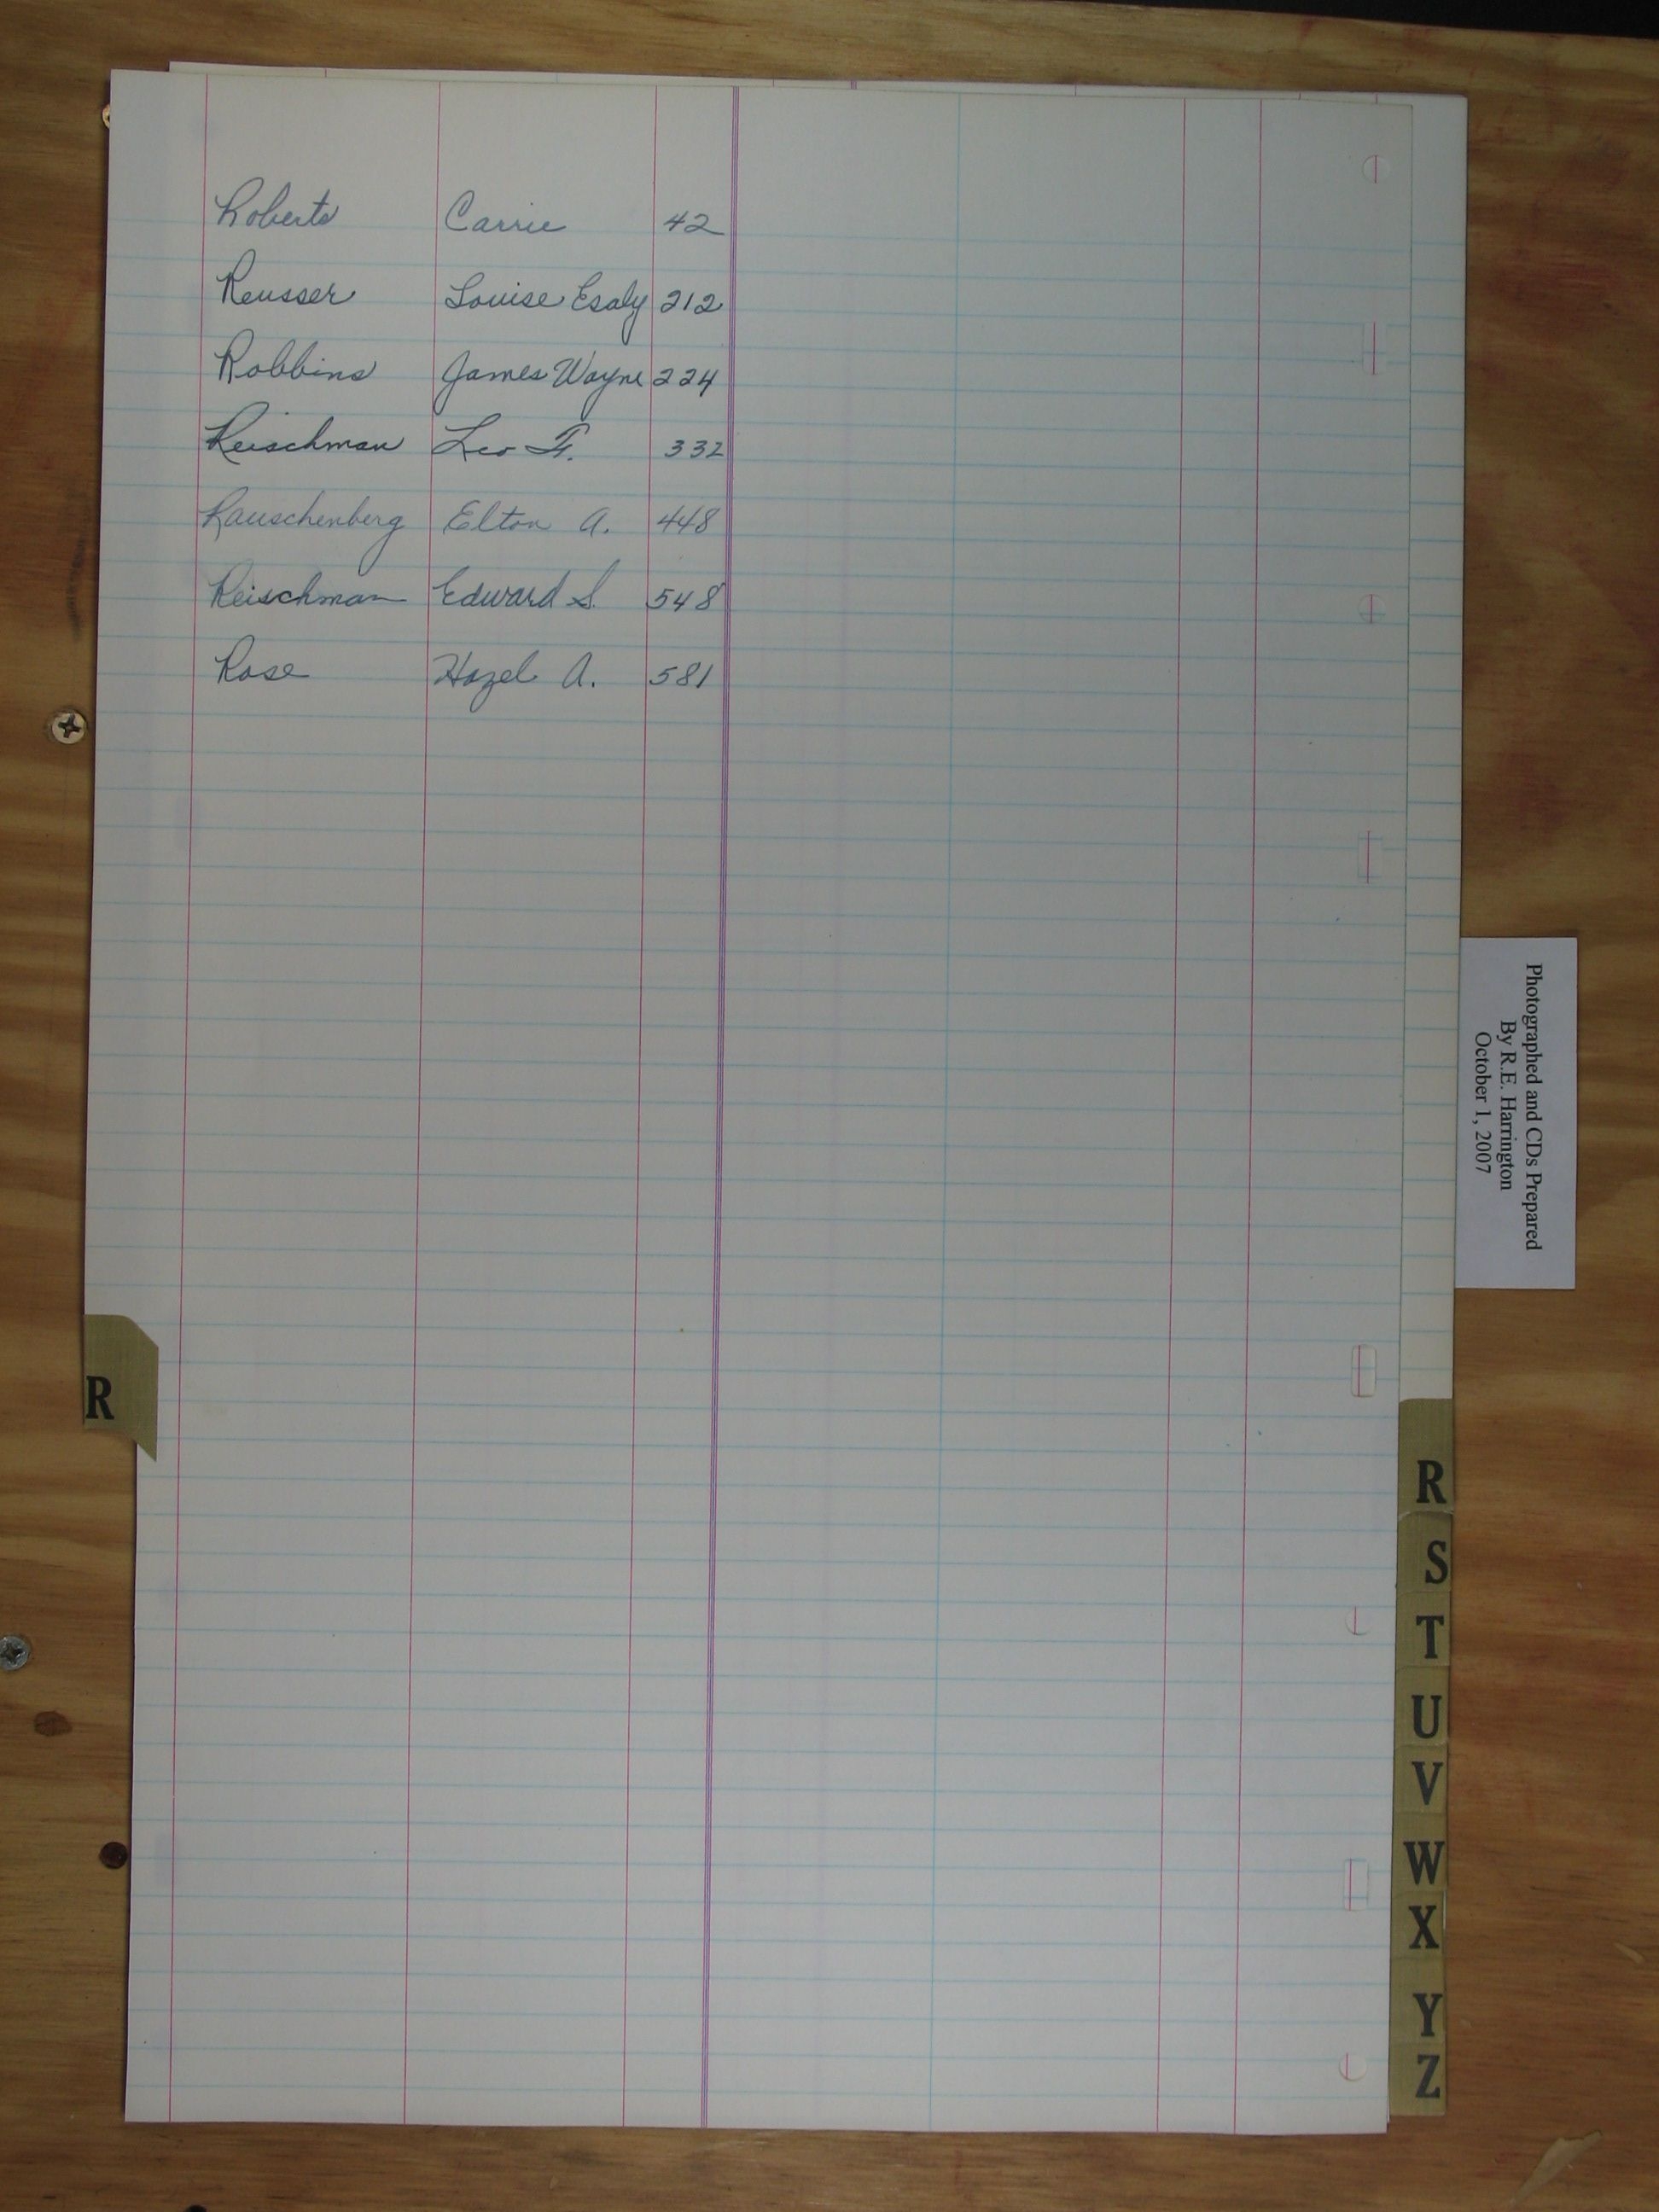 Roberts Carrie 42
Reusser Louise Esaly 212
Robbins James Wayne 224
Reischman Leo F. 332
Rauschenberg Elton A. 448
Reischman Edward S. 548
Rose Hazel A. 581
Photographed and CDs Prepared
By R.E. Harrington
October 1, 2007
R
R
S
T
U
V
W
X
Y
Z